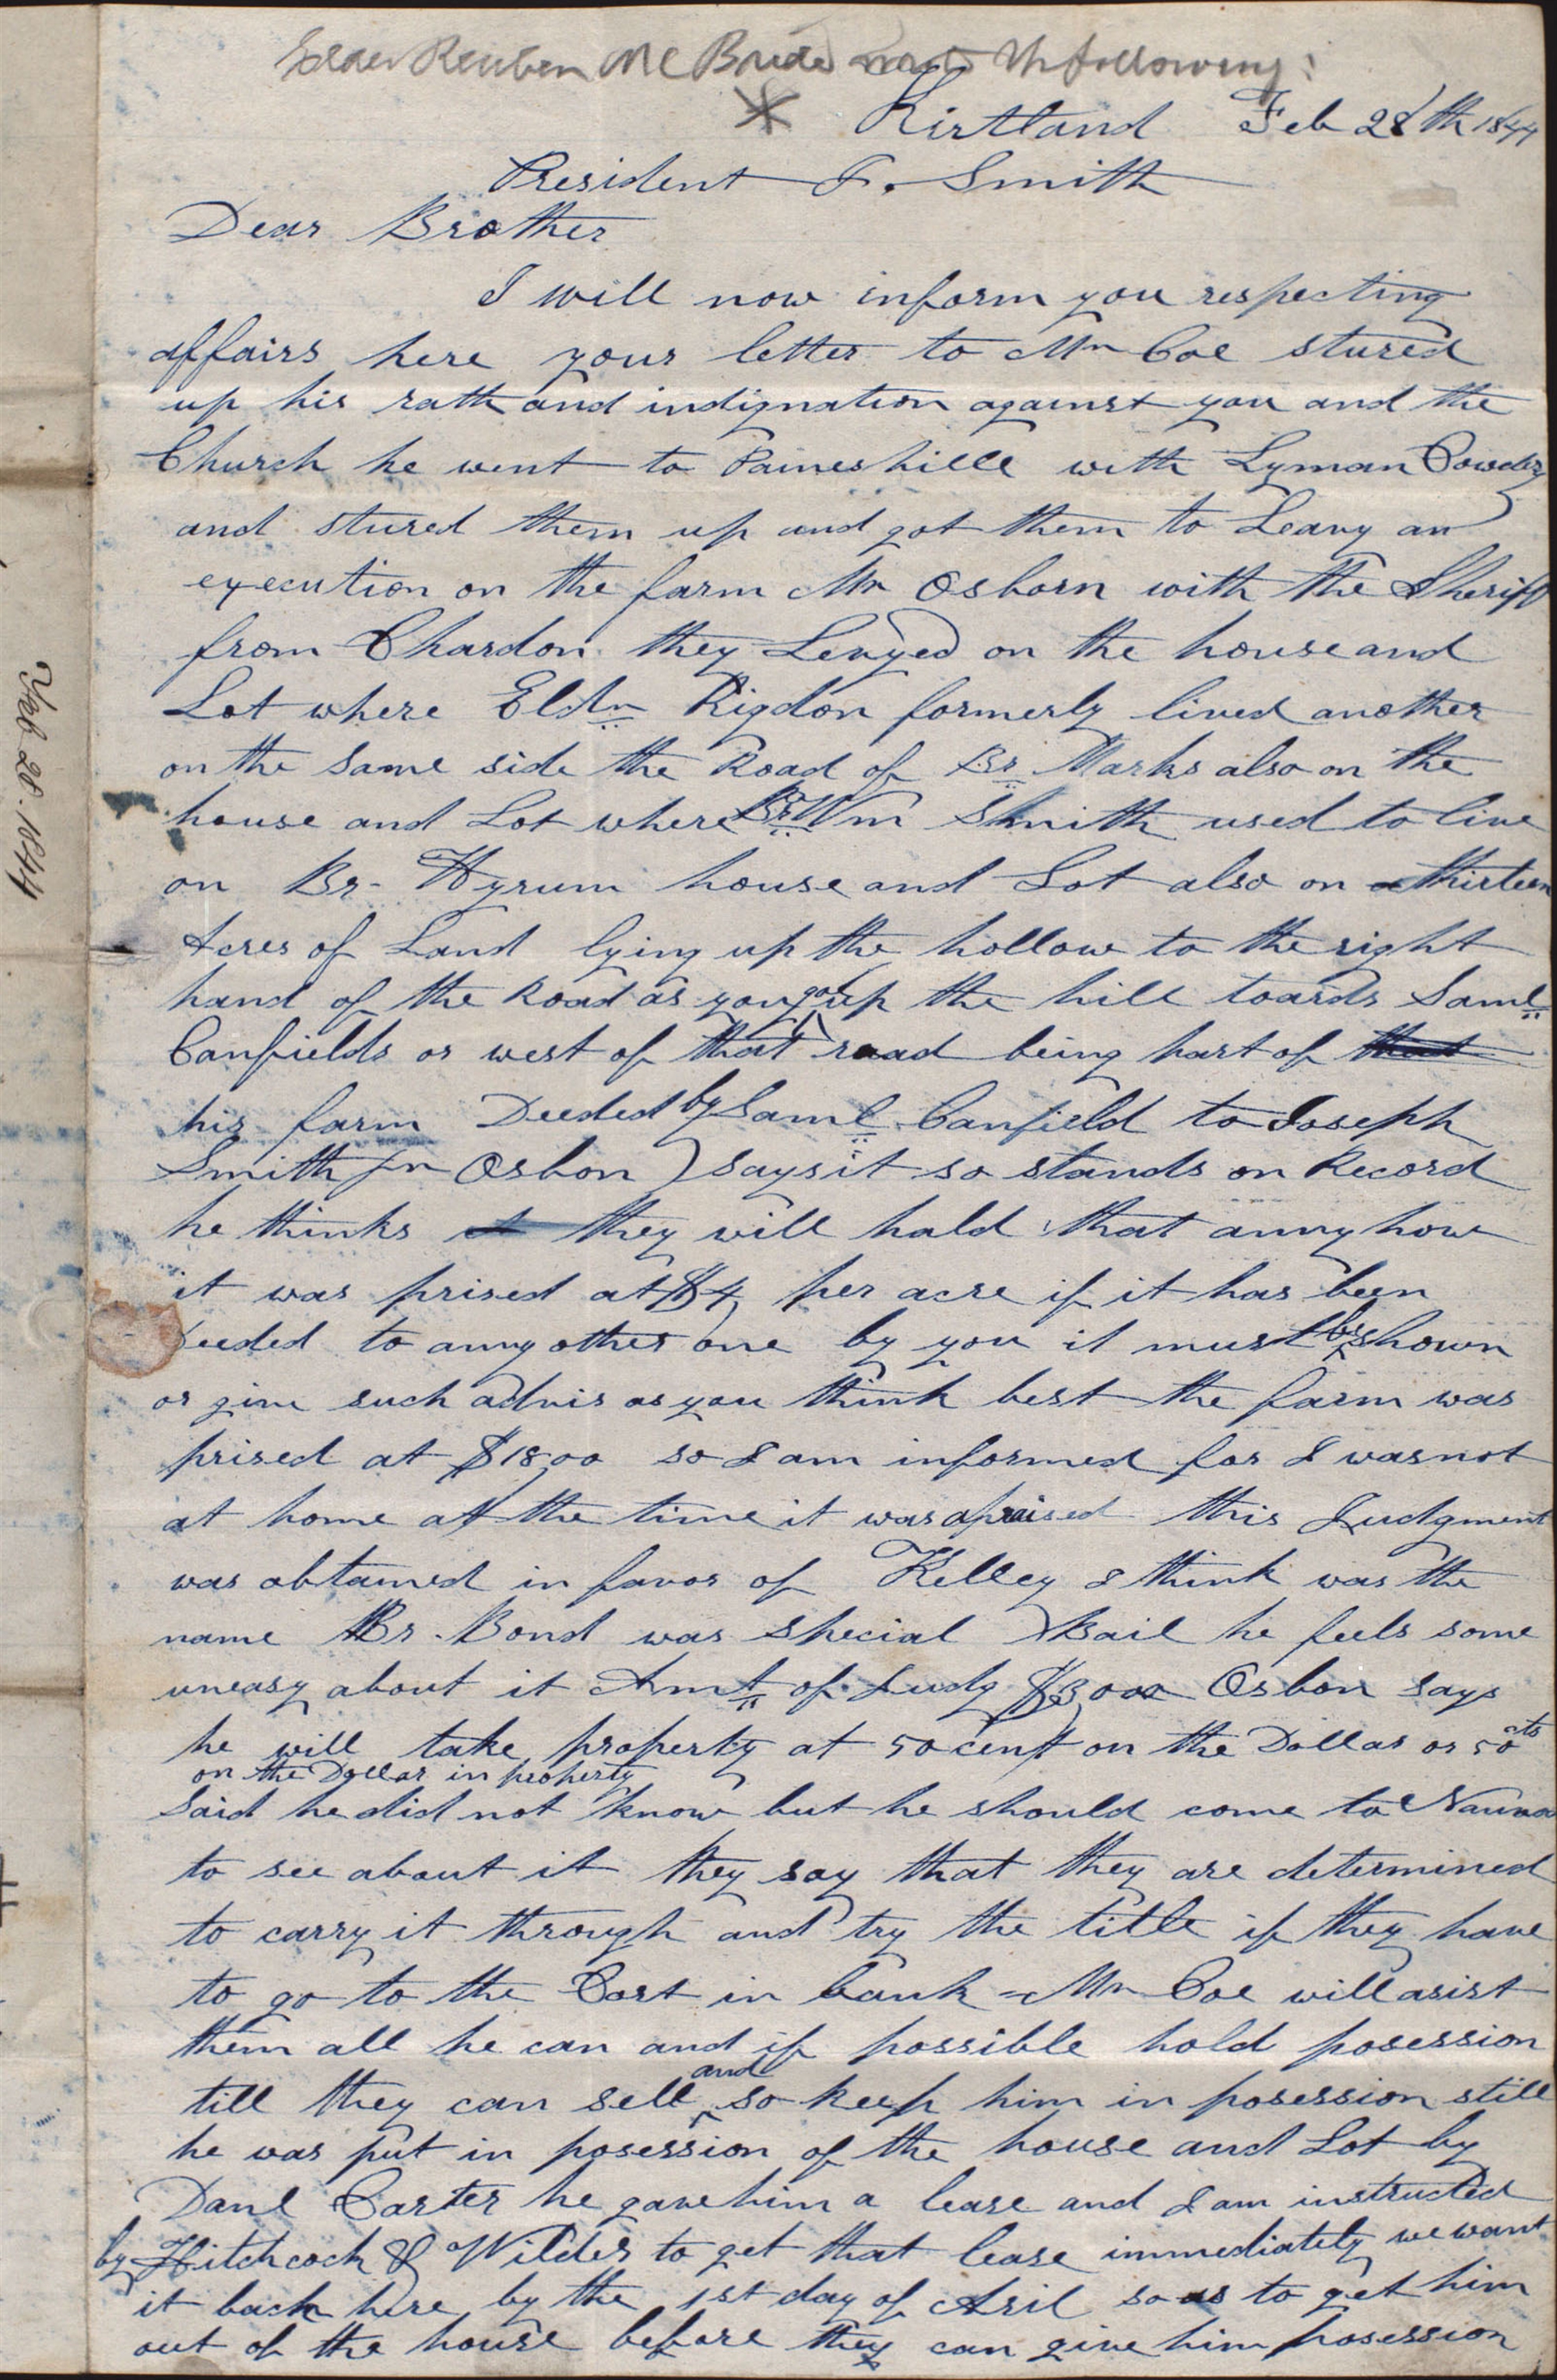 Elder Reuben McBride wrote the following:
* Kirtland Feb 28th 1844
President J. Smith
Dear Brother
I will now inform you respecting
affairs here your letter to Mr Coe stured
up his rath and indignation against you and the
Church he went to Paineshille with Lyman Cowdry
and stured them up and got them to Leavy an
execution on the farm Mr Osborn with the Sheriff
from Chardon they Levyed on the house and
Lot where Eldr Rigdon formerly lived another
on the same side the Road of Br Marks also on the
house and Lot where Br Wm Smith used to live
on Br- Hyrum house and Lot also on thirteen
Acres of Land lying up the hollow to the right
hand of the Road as you go up the hill toards Saml
Canfields or west of that road being part of that
his farm Deeded by Saml Canfield to Joseph
Smith Jr Osbon) says it so stands on Record
he thinks they will hald that anny how
it was prised at $4 per acre if it has been
Deeded to anny other one by you it must be shown
or give such advis as you think best the farm was
prised at $1800 so I am informed for I was not
at home at the time it was apraised this Judgment
was obtained in favor of Kelley I think was the
name Br. Bond was special Bail he feels some
uneasy about it Amt of Judg $3000 Osbon says
he will take property at 50 cent on the Dollar or 50 cts
on the Dollar in property
said he did not know but he should come to Nauvoo
to see about it they say that they are determined
to carry it through and try the title if they have
to go to the Cort in bank - Mr Coe will asist
them all he can and if possible hold posession
till they can sell and so keep him in posession still
he was put in posession of the house and Lot by
Danl Carter he gave him a lease and I am instructed
by Hitchcock & Wilder to get that lease immediately we want
it back here by the 1st day of Aril so as to get him
out of the house before they can give him posession
Feb 28. 1844